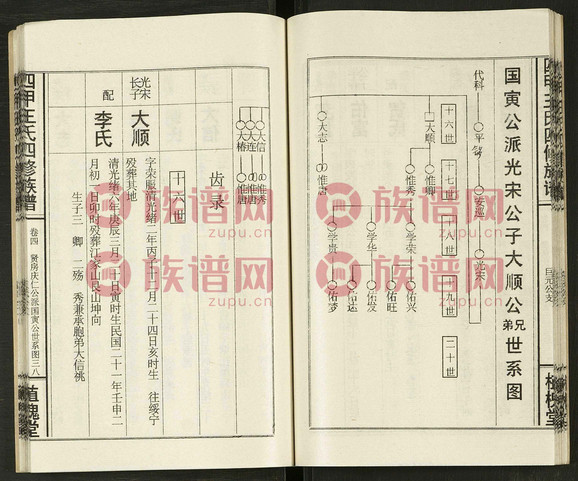 国寅公派光宋公子大顺公兄弟世系图
代科
平
光宋
十六世
十七世
十八世
十九世
二十世
大顺
惟卿
惟秀
学荣
佑兴
佑旺
学华
佑发
佑达
大志
惟唐
学贵
佑梦
四甲王氏四修族谱
植槐堂
大信
惟秀
大连
惟唐
大椿
惟唐
齿录
十六世
光宋长子
大顺
字荣赈清光绪二年丙子十二月二十四日亥时生 往绥宁
殁葬其地
配
李氏
清光绪六年庚辰三月二十日寅时生民国二十一年壬申二
月初一日卯时殁葬江家山艮山坤向
生子三 卿 二殇 秀兼承胞弟大信桃
四甲王氏四修族谱
卷四 贤房庆仁公派国寅公世系图三八
植槐堂
族谱网
zupu.cn
族谱网
zupu.cn
族谱网
zupu.cn
族谱网
zupu.cn